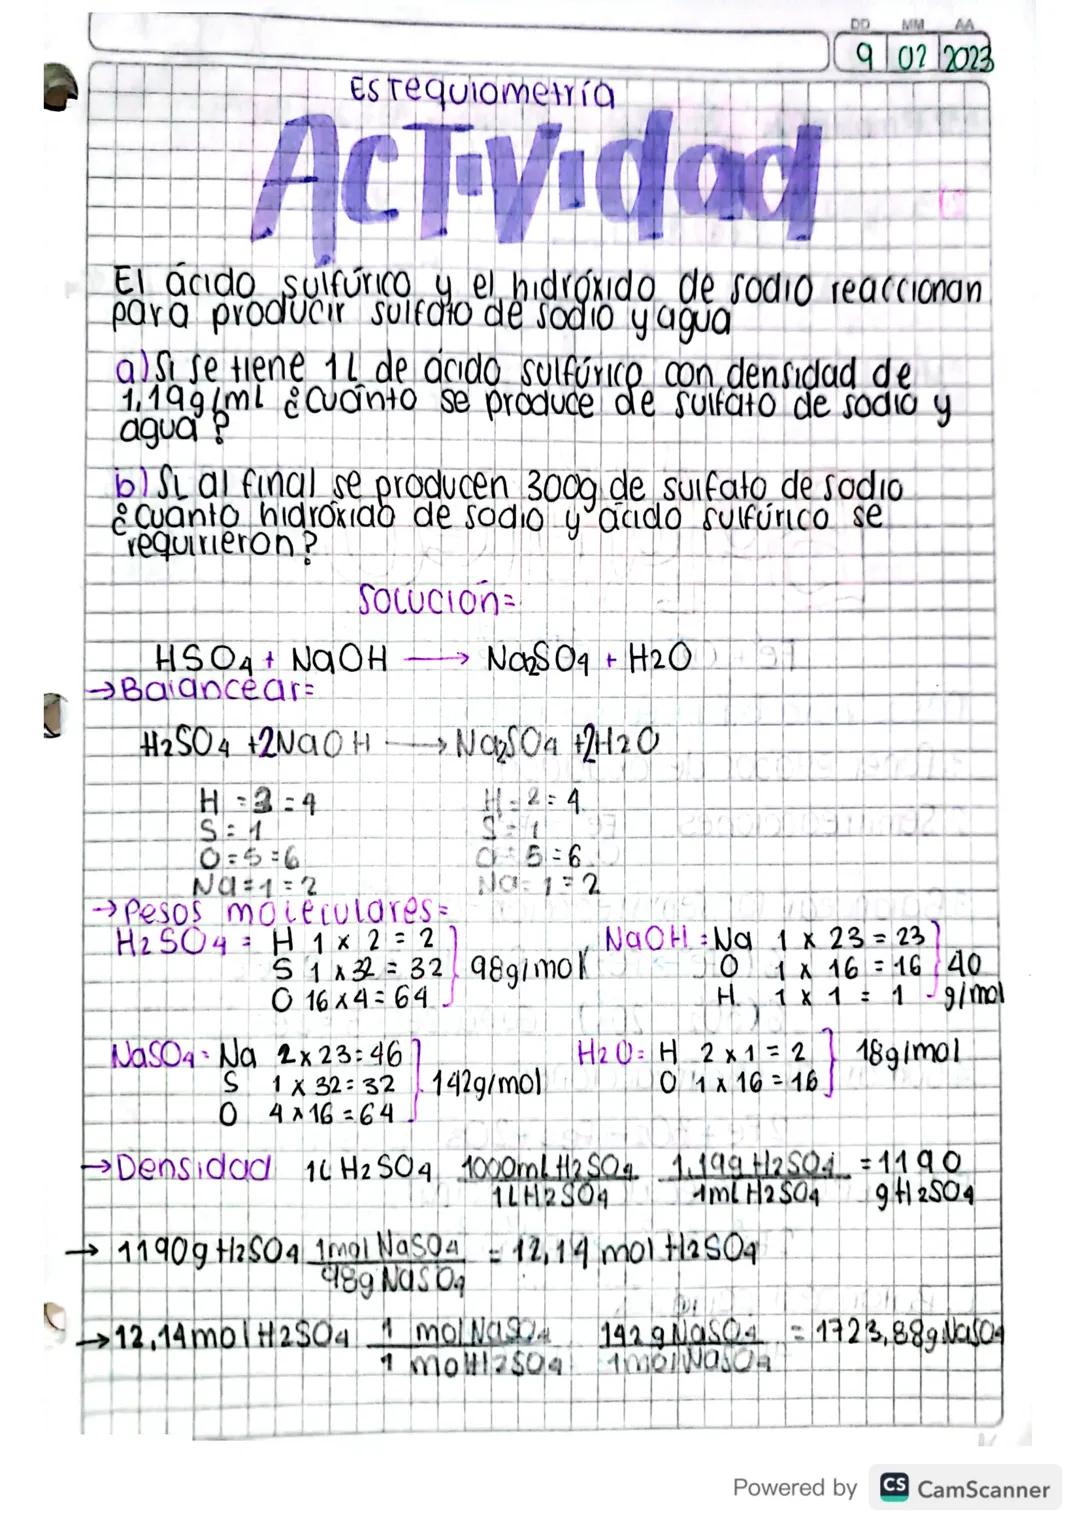 DD MM AA
9 02 2023
Estequiometría
Actividad
El ácido sulfúrico y el hidróxido de sodio reaccionan
para producir sulfato de sodio y agua
a) Si se tiene 1L de ácido sulfúrico con densidad de
1,19g/ml ¿Cuánto se produce de sulfato de sodio y
agua?
b) Si al final se producen 300g de sulfato de sodio
¿cuanto hidróxido de sodio y ácido sulfúrico se
requirieron?
Solución=
HSO4 + NaOH → Na2SO4 + H2O
→Balancear=
H2SO4 +2NaOH → Na2SO4 +2H2O
H = 3 = 4 H = 2 = 4
S = 1 S = 1
O = 5 = 6 O = 5 = 6
Na = 1 = 2 Na = 1 = 2
→Pesos moleculares=
H2SO4 = H 1 x 2 = 2 NaOH = Na 1 x 23 = 23
S 1 x 32 = 32 98g/mol O 1 x 16 = 16 40
O 16 x 4 = 64 H 1 x 1 = 1 g/mol
NaSO4 = Na 2 x 23 = 46 H2O = H 2 x 1 = 2 18g/mol
S 1 x 32 = 32 142g/mol O 1 x 16 = 16
O 4 x 16 = 64
→Densidad 1L H2SO4 1000ml H2SO4 1,19g H2SO4 = 1190
1L H2SO4 1ml H2SO4 g H2SO4
→ 1190g H2SO4 1mol NaSO4 = 12,14 mol H2SO4
98g NaSO4
→12,14mol H2SO4 1 mol NaSO4 142 g NaSO4 = 1723,88g NaSO4
1 mol H2SO4 1mol NaSO4
Powered by CS CamScanner